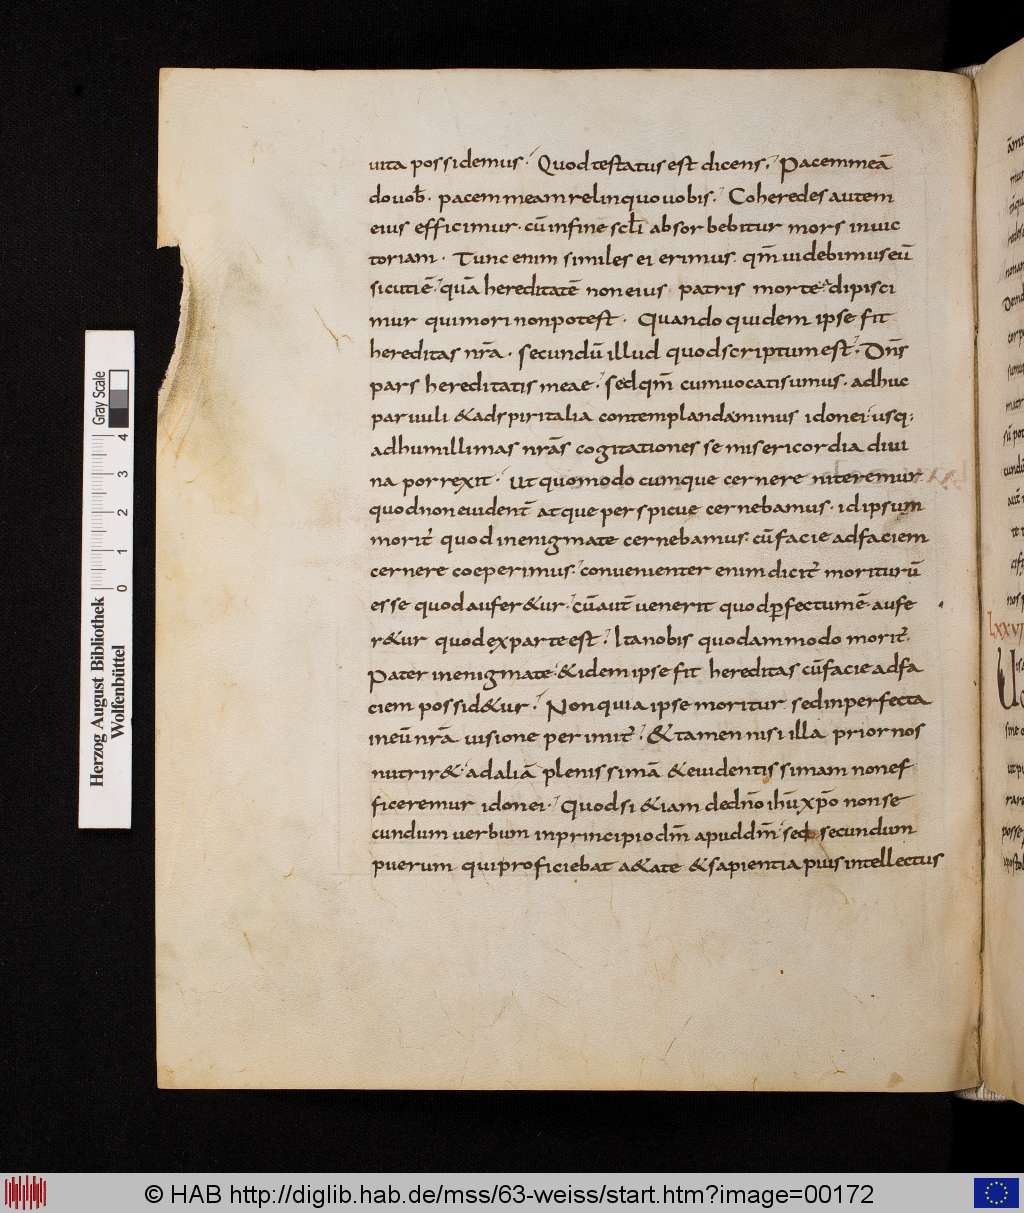 uita possidemus. Quod testatus est dicens. Pacem meā
do uob̄. pacem meam relinquo uobis. Coheredes autem
eius efficimur. cū in fine scl̄i absorbebitur mors in uic
toriam. Tunc enim similes ei erimus. qm̄ uidebimus eū
sicuti ē. quā hereditatē non eius patris morte adipisci
mur qui mori non potest. Quando quidem ipse fit
hereditas nr̄a. secundū illud quod scriptum est. Dn̄s
pars hereditatis meae. sed qm̄ cum uocati sumus. adhuc
paruuli & ad spiritalia contemplanda minus idonei. usq;
ad humillimas nr̄as cogitationes se misericordia diui
na porrexit. ut quomodo cumque cernere niteremur
quod non euident̄ atque perspicue cernebamus. id ipsum
morit̄ quod in enigmate cernebamus. cū facie ad faciem
cernere coeperimus. conuenienter enim dicit̄ moriturū
esse quod aufer&ur. cū aut̄ uenerit quod ꝑfectum ē. aufe
r&ur quod ex parte est. Ita nobis quodammodo morit̄.
Pater in enigmate. & idem ipse fit hereditas cū facie ad fa
ciem possid&ur. Non quia ipse moritur sed inperfecta
in eū nr̄a uisione perimit̄. & tamen nisi illa prior nos
nutrir& ad aliā plenissimā & euidentissimam non ef
ficeremur idonei. Quod si & iam de dn̄o ih̄u xp̄o non se
cundum uerbum in principio dm̄ apud dm̄ sed secundum
puerum qui proficiebat a&ate & sapientia pius intellectus
LXXVI
Herzog August Bibliothek
Wolfenbüttel
Gray Scale
0 1 2 3 4
© HAB http://diglib.hab.de/mss/63-weiss/start.htm?image=00172